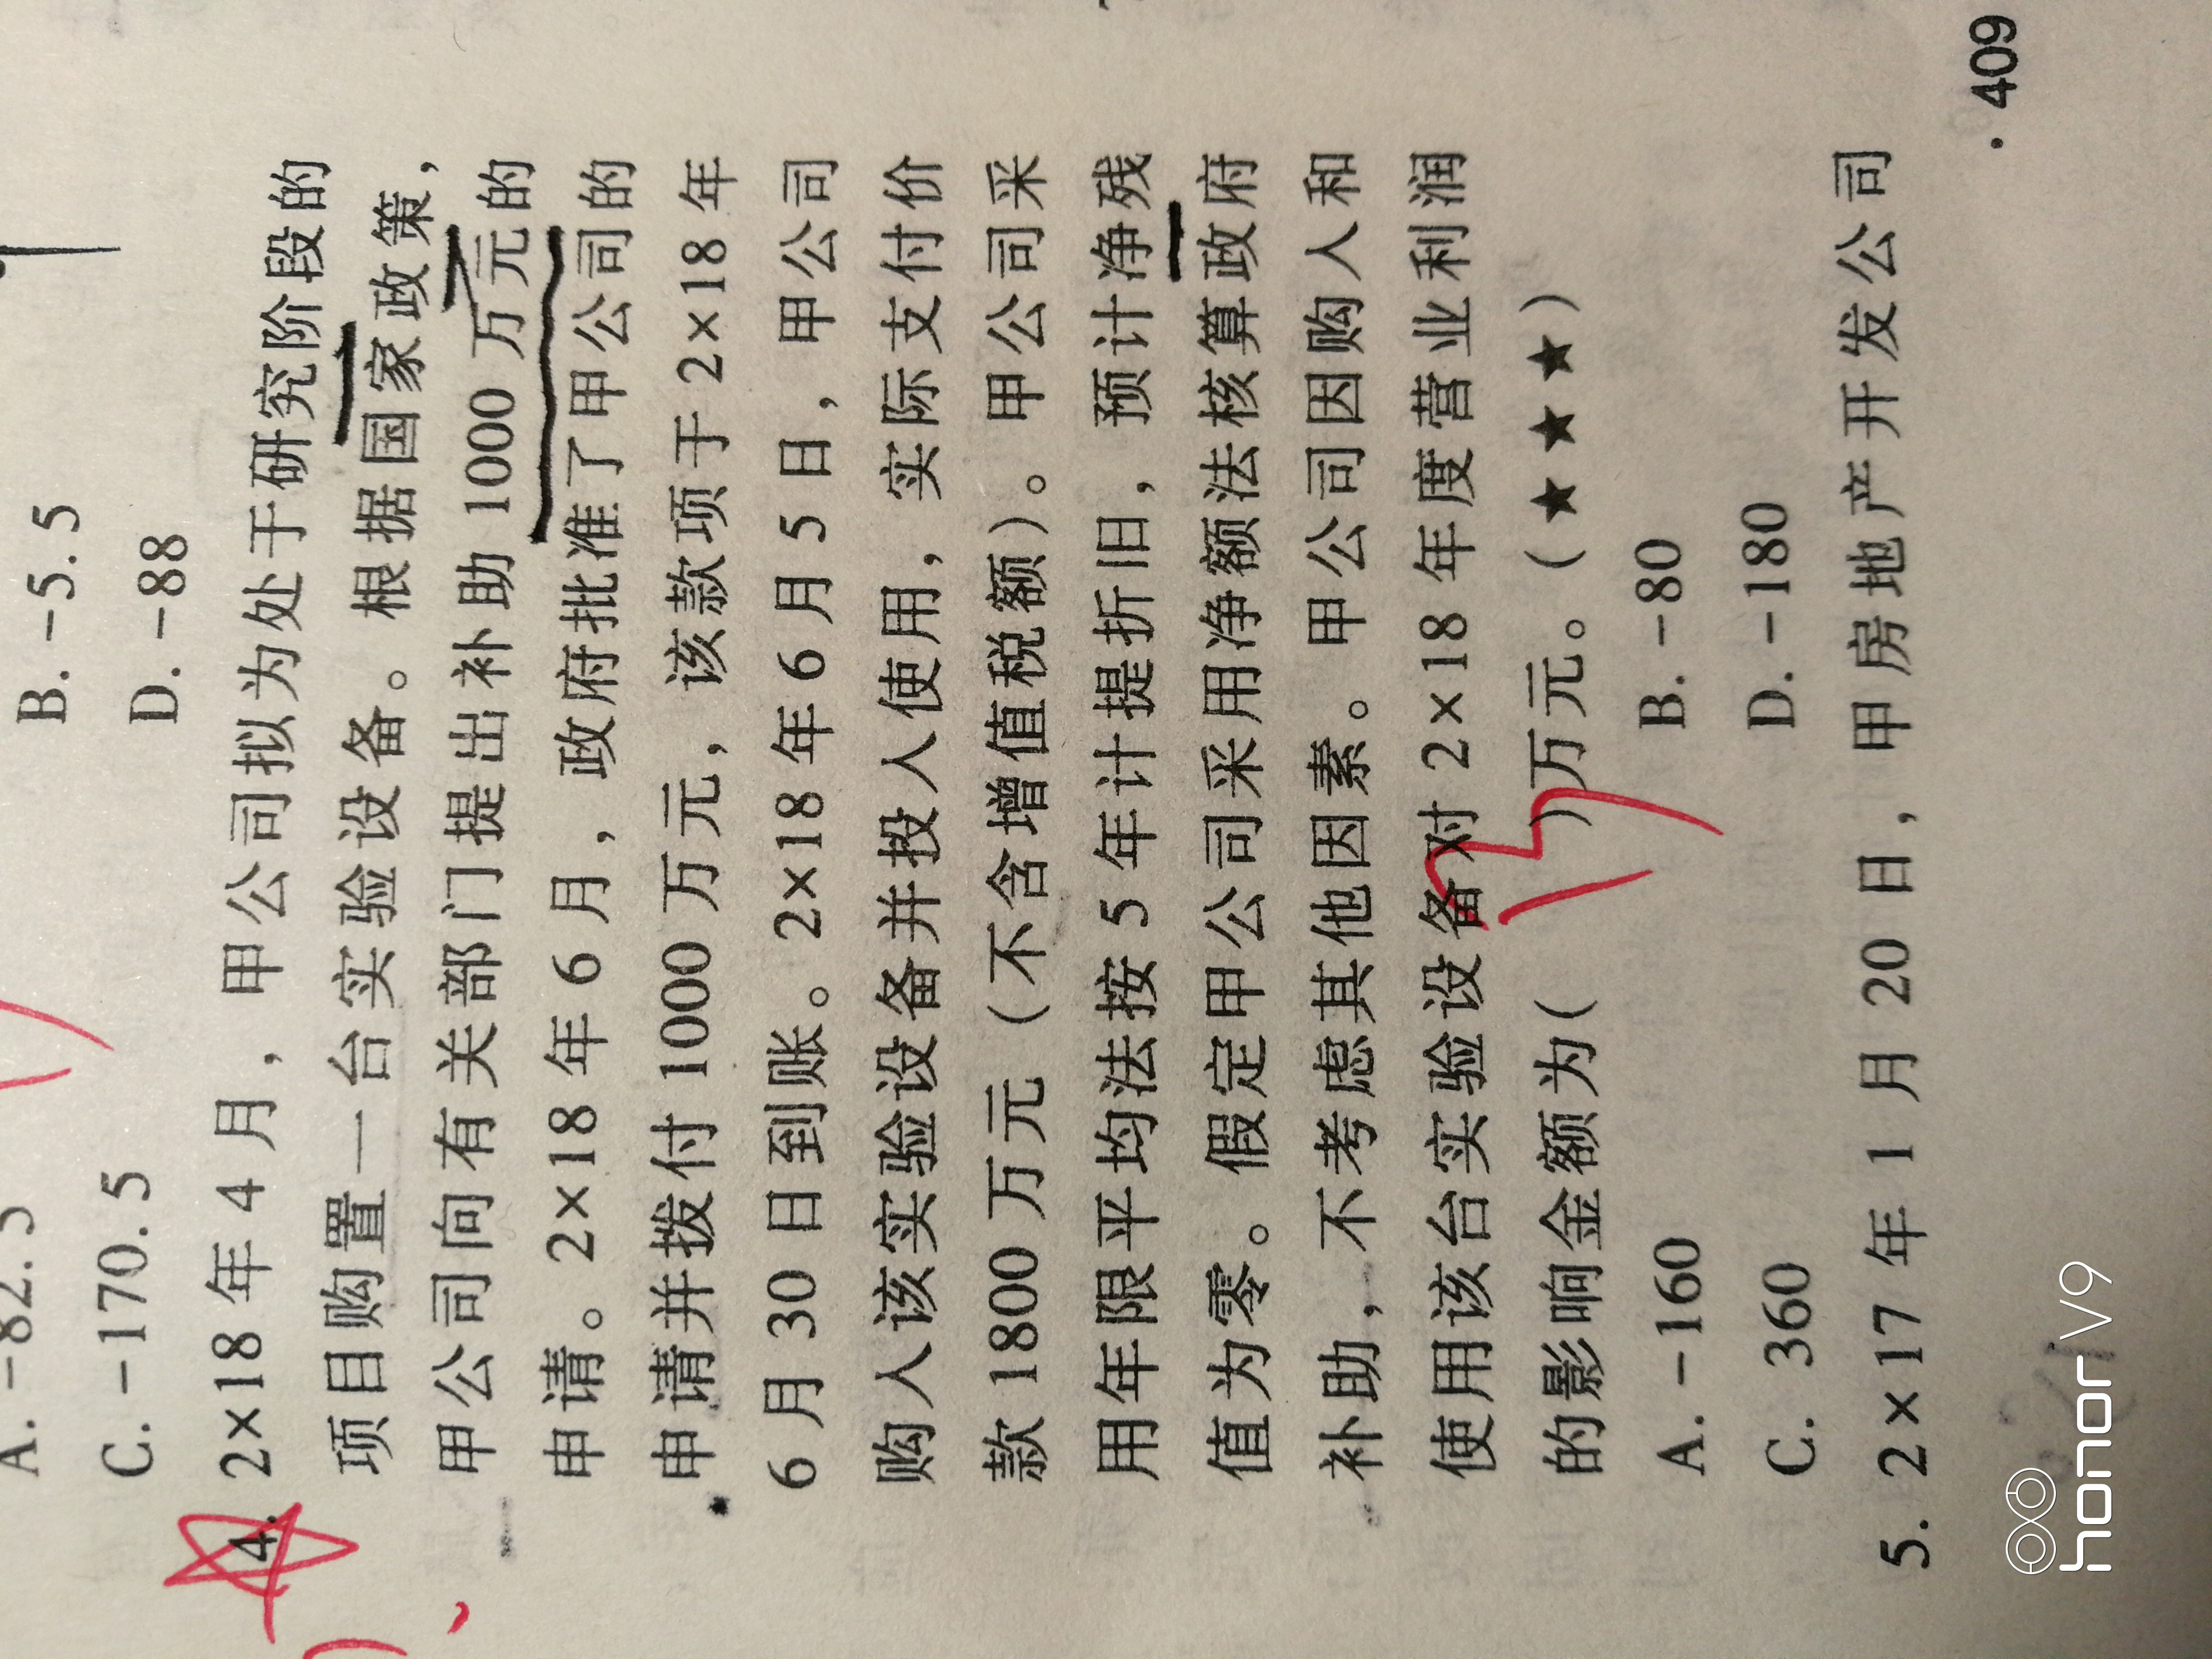 A. -82.5
B. -5.5
C. -170.5
D. -88
4. 2×18 年 4 月，甲公司拟为处于研究阶段的
项目购置一台实验设备。根据国家政策，
甲公司向有关部门提出补助 1000 万元的
申请。2×18 年 6 月，政府批准了甲公司的
申请并拨付 1000 万元，该款项于 2×18 年
6 月 30 日到账。2×18 年 6 月 5 日，甲公司
购入该实验设备并投入使用，实际支付价
款 1800 万元（不含增值税额）。甲公司采
用年限平均法按 5 年计提折旧，预计净残
值为零。假定甲公司采用净额法核算政府
补助，不考虑其他因素。甲公司因购入和
使用该台实验设备对 2×18 年度营业利润
的影响金额为(　　)万元。(★★★)
A. -160
B. -80
C. 360
D. -180
5. 2×17 年 1 月 20 日，甲房地产开发公司
· 409
honor V9